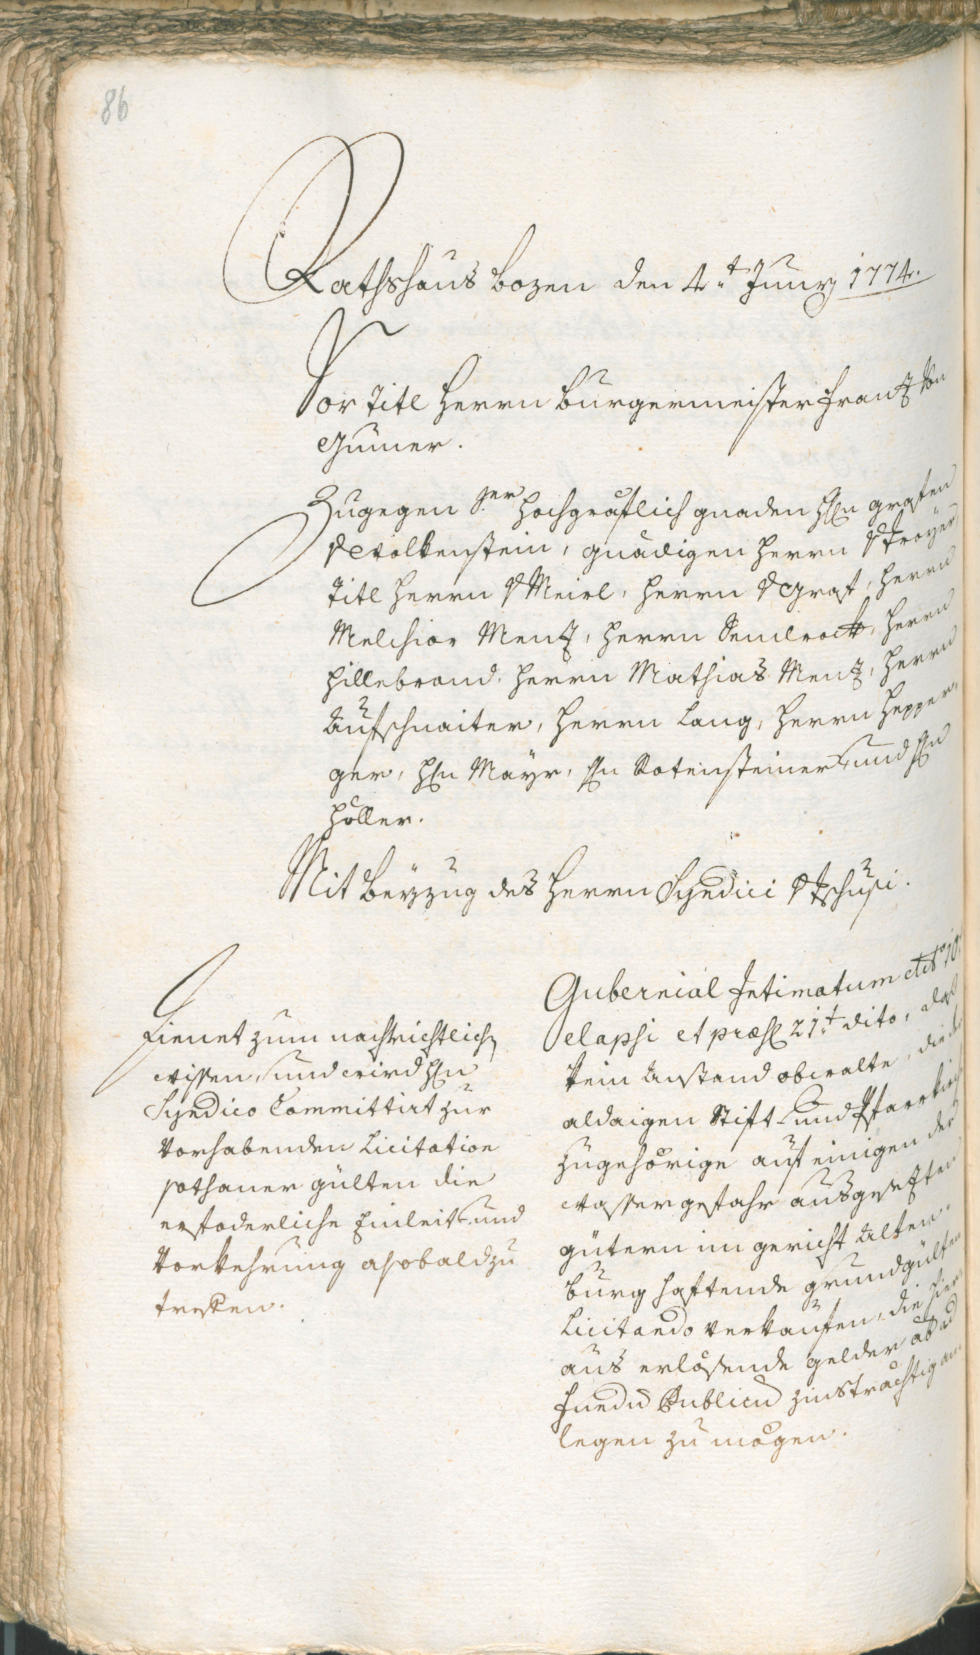 86
Rathshaus Bozen den 4.t Juny 1774.
Vor Titl Herrn Burgermeister Frantz von
Gumer.
Zugegen Sr. hochgräflich gnaden Hℓn grafen
v Wolkenstein, gnädigen Herrn v Troyer
Titl Herrn v Meirl, Herrn v Graf, Herrn
Melchior Mentz, Herrn Sendrock, Herrn
Hillebrand, Herrn Mathias Mentz, Herrn
Aufschnaiter, Herrn Lang, Herrn Hepper,
ger, Hℓn Mayr, Hℓn Rotensteiner und Hℓn
Holler.
Mit Beyzug des Herrn Syndici v Tschusi.
Dienet zum nachrichtlichen
wissen, und wird Hℓn
Syndico Committirt zur
vorhabenden Licitation
sothaner gülten die
erfoderliche Einleit- und
Vorkehrung alsobald zu
treffen.
Gubernial Intimatum ddto 10.
elapsi et præs 21.t dito, daß
kein Anstand obwalte, die
aldaigen Stift- und Pfarrkirch
zugehörige auf einigen der
wassergefahr ausgesezten
gütern im gericht Alten-
burg haftende grundgülten
Licitando verkaufen, die hier
aus erlösende gelder ab ad
Fundū Publicū zinsträchtig an
legen zu mögen.